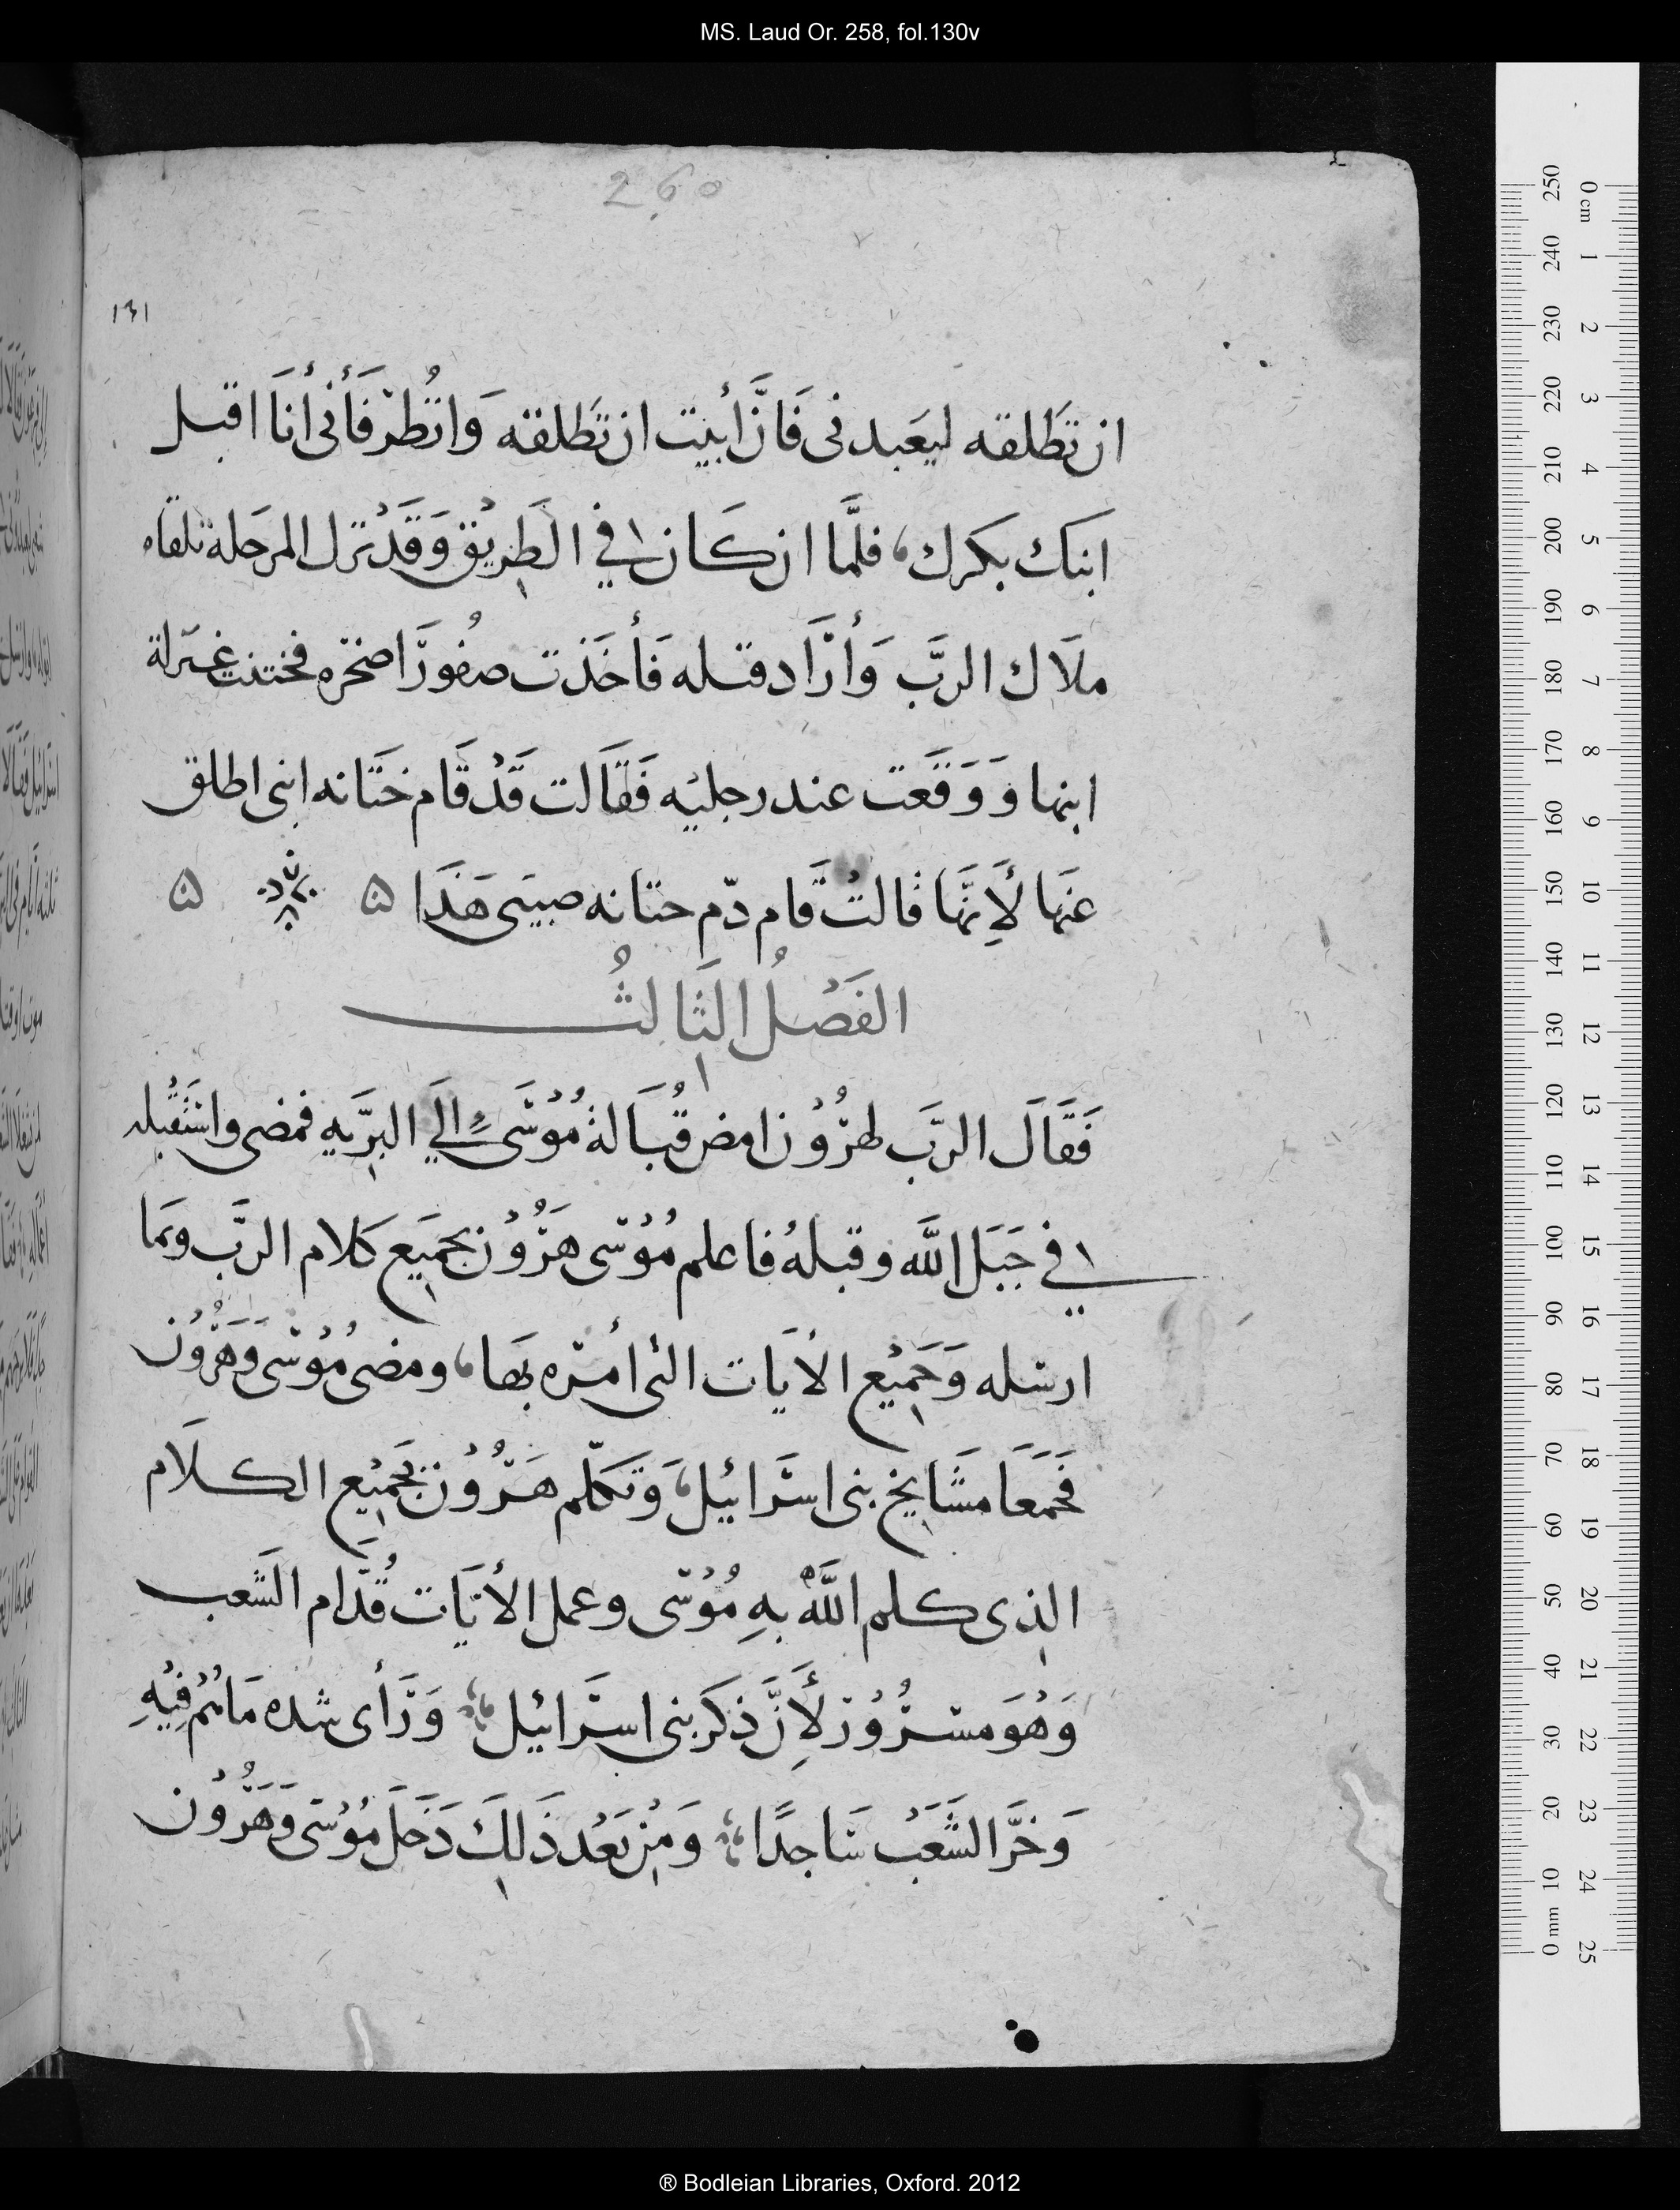 MS. Laud Or. 258, fol.130v
260
١٣١
ان تَطلقه ليعَبدنى فَانَّ أبيت ان تَطلقه وَانُظر فَأنى أنَا اقبل
ابنك بكرك، فلمَّا ان كَان في الطَريْق وَقَدْ نزل المرحَلة تلقاه
ملَاك الربَّ وَأرَاد قتله فَأخَذت صفُورَا صَخره فختنت غَرلة
ابنها وَوَقَعت عند رجليْه فَقَالت قَدْ قَام خَتَانه ابنى اطلق
عنَها لأَنهَّا قالتْ قَام دّم ختانه صبيى هَذَا ۵ ۵
الفَصْلُ الثَالثُ
فَقَالَ الربَّ لهرُوْن امض قُبَالةْ مُوْسَى إلَي البرَّيه فمضى واسْتَقْبله
في جَبَل اللَّه وقبلهُ فاعلم مُوْسَى هَرُوْن بجَميَع كَلام الربَّ وبمَا
ارسله وَجَميْع الأيَات التى أمرَه بهَا، ومضى مُوْسَى وَهَرُوْن
فَجَمعَا مشَايخ بنى اسرَائيل، وَتكلّم هَرُوْن بجَميْع الكلَام
الذى كلم اللَّه بهِ مُوْسَى وعمل الأيَات قُدَام الشَعب
وَهُوَ مسرُوْر لأَنَّ ذكر بنى اسرَائيل ؛ وَرَأى شده مَا هُمْ فيْهِ
وَخرَّ الشَعَبْ سَاجدًا ؛ وَمْن بَعْد ذَلكَ دَخَلَ مُوْسَى وَهَرُوْن
0 cm 1 2 3 4 5 6 7 8 9 10 11 12 13 14 15 16 17 18 19 20 21 22 23 24 25
250 240 230 220 210 200 190 180 170 160 150 140 130 120 110 100 90 80 70 60 50 40 30 20 10 0 mm
® Bodleian Libraries, Oxford. 2012